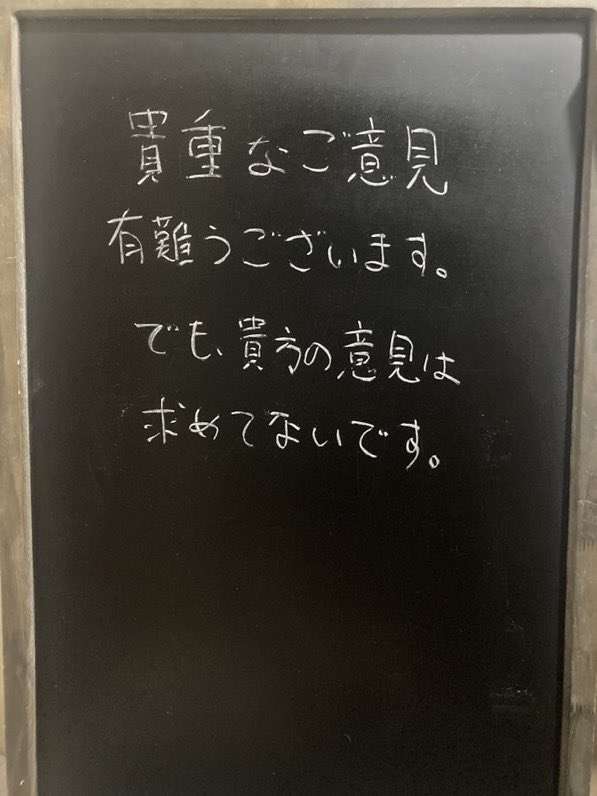 貴重なご意見
有難うございます。
でも、貴方の意見は
求めてないです。